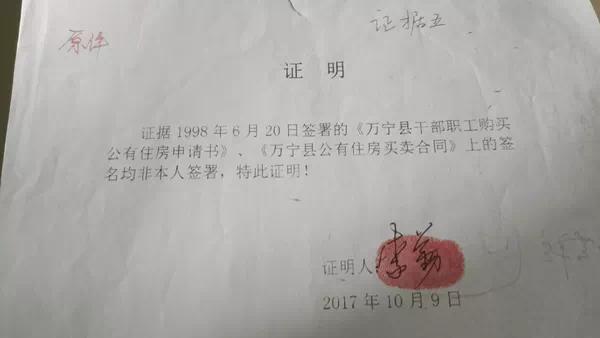 原件
证据五
证 明
证据1998年6月20日签署的《万宁县干部职工购买
公有住房申请书》、《万宁县公有住房买卖合同》上的签
名均非本人签署，特此证明！
证明人
2017年10月9日